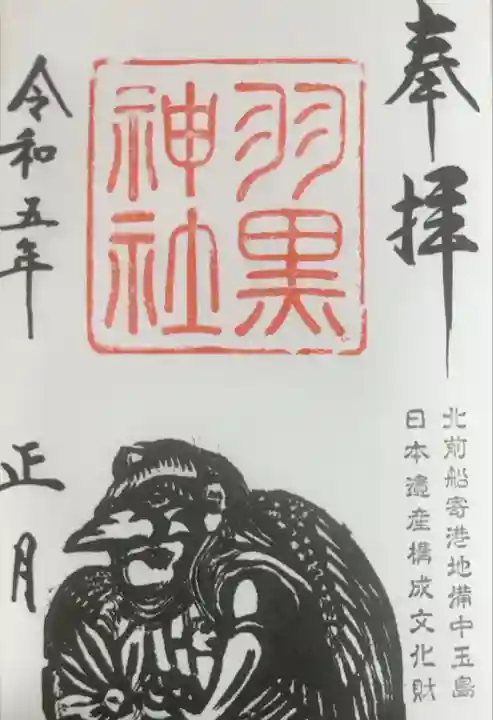 奉拝
北前船寄港地備中玉島
日本遺産構成文化財
羽黒
神社
令和五年
正月